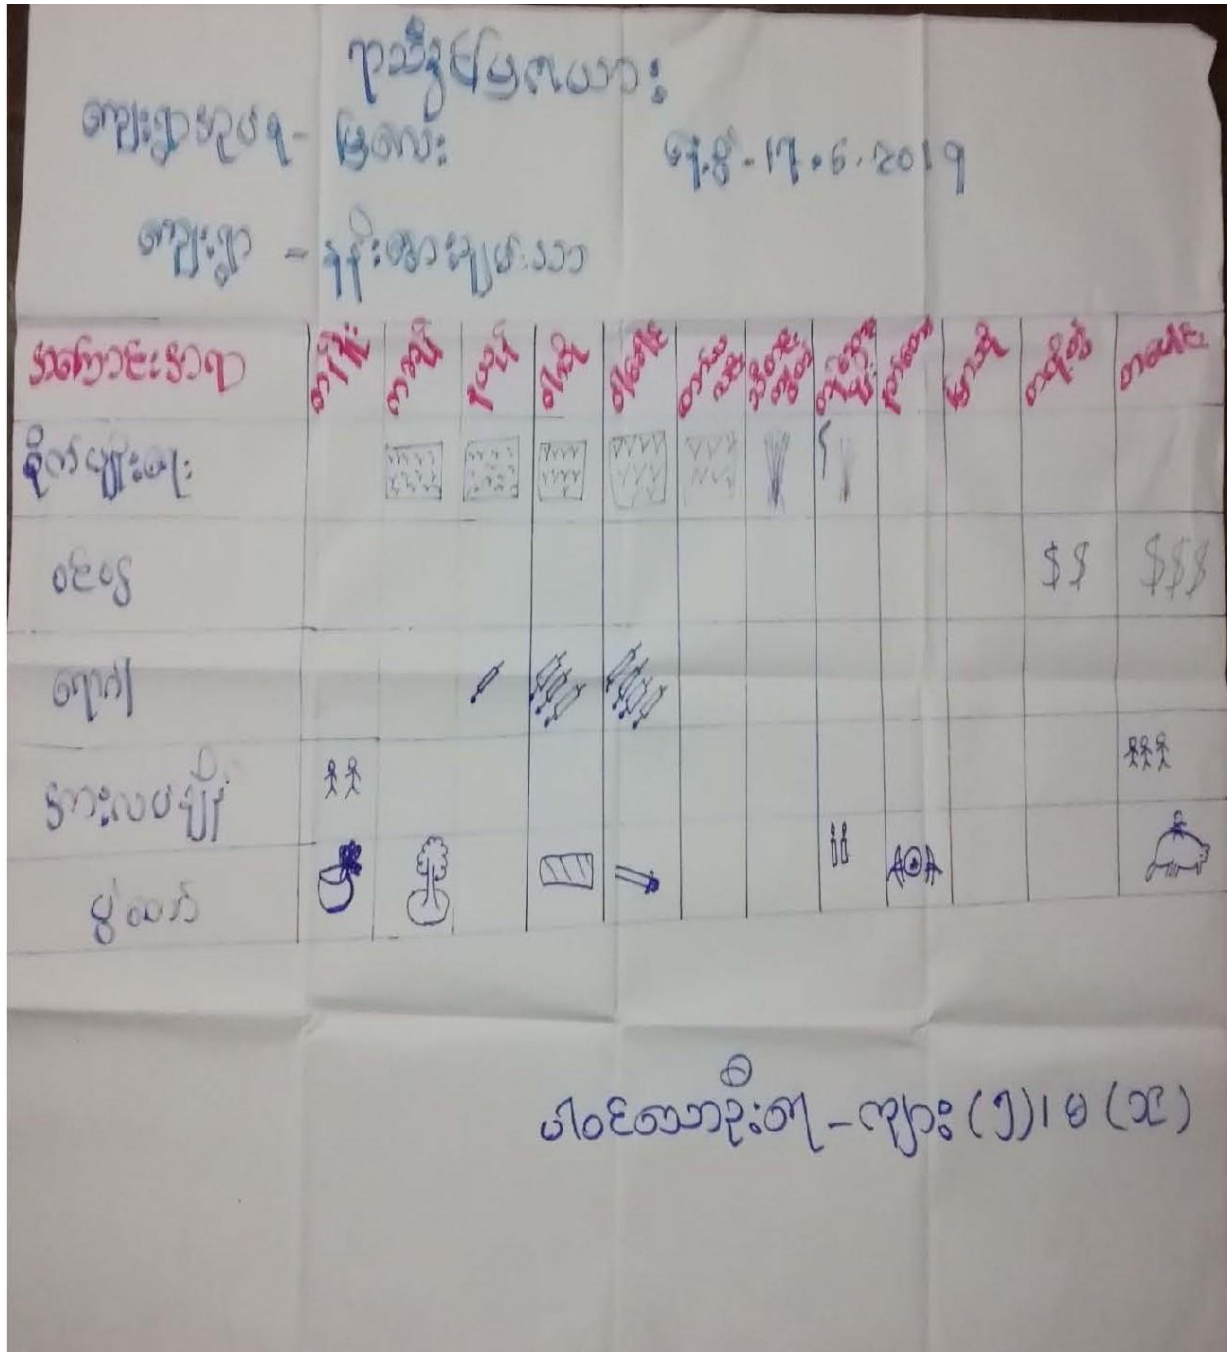 ရာသီခွင်ပြဇယား
ကျေးရွာအုပ်စု - မြလေး
နေ့စွဲ - 17.6.2019
ကျေးရွာ -
အကြောင်းအရာ တန်ခူး ကဆုန် နယုန် ဝါဆို ဝါခေါင် တော်သလင်း သီတင်းကျွတ် တန်ဆောင်မုန်း နတ်တော် ပြာသို တပို့တွဲ တပေါင်း
စိုက်ပျိုးရေး
ဝင်ငွေ $$ $$$
ရောဂါ
အားလပ်ချိန်
ပွဲတော်
ပါဝင်သောဦးရေ - ကျား (၅)၊ မ (၁၄)